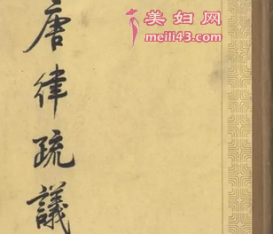 唐律疏議
美妇网
meili43.com